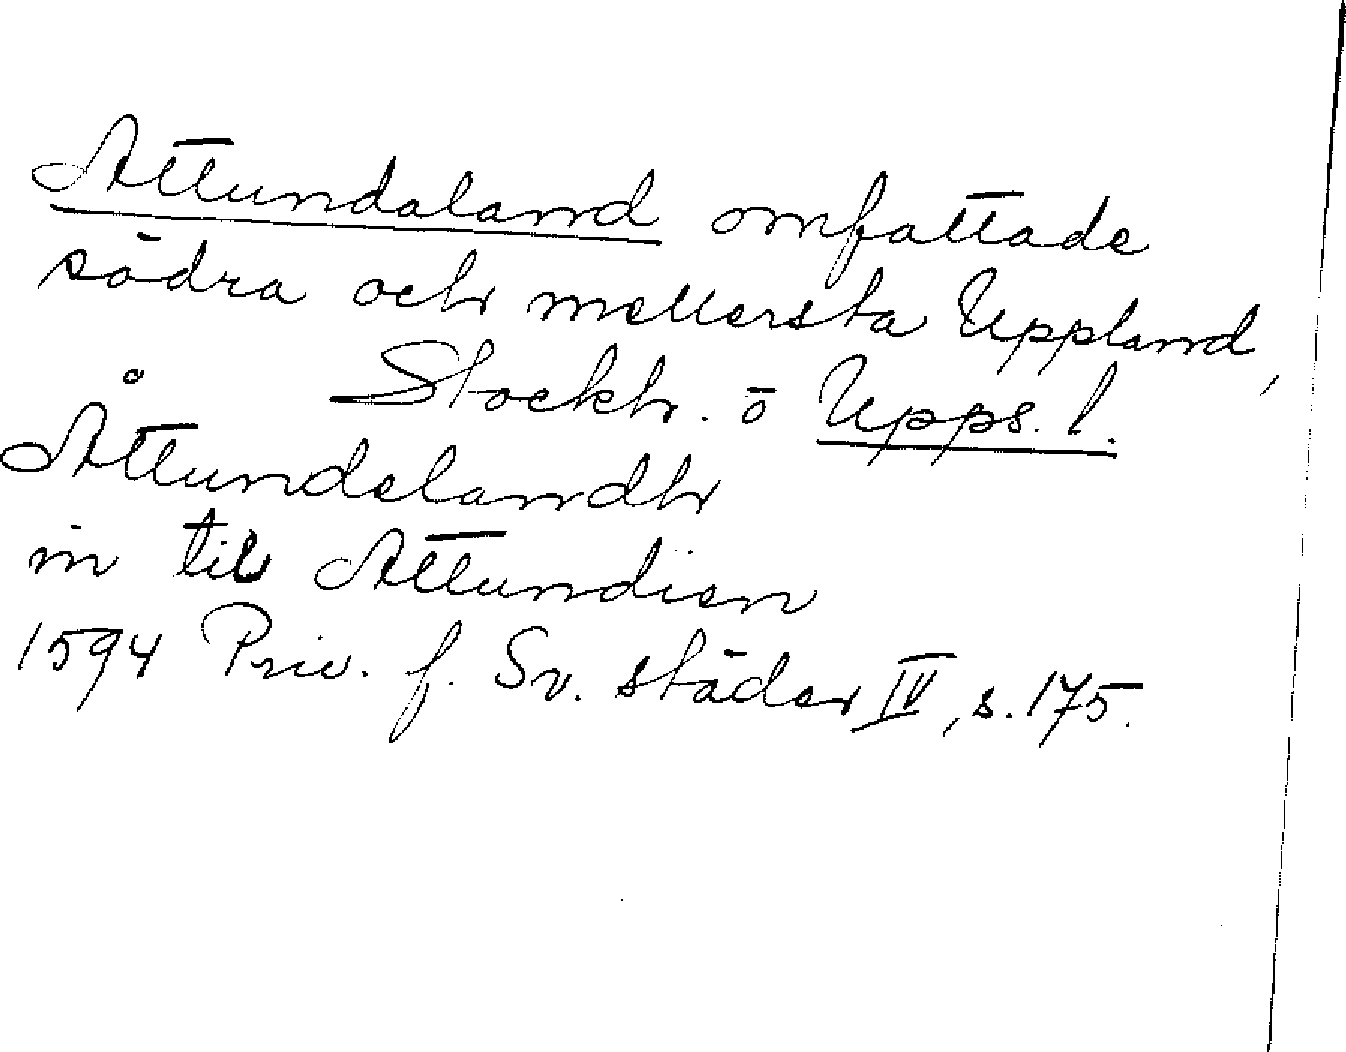 Attundaland omfattade
södra och mellersta Uppland,
Stockh. o Upps. l.
Åttundelandh
in till Attundien
1594 Priv. f. Sv. städer IV, s. 175.